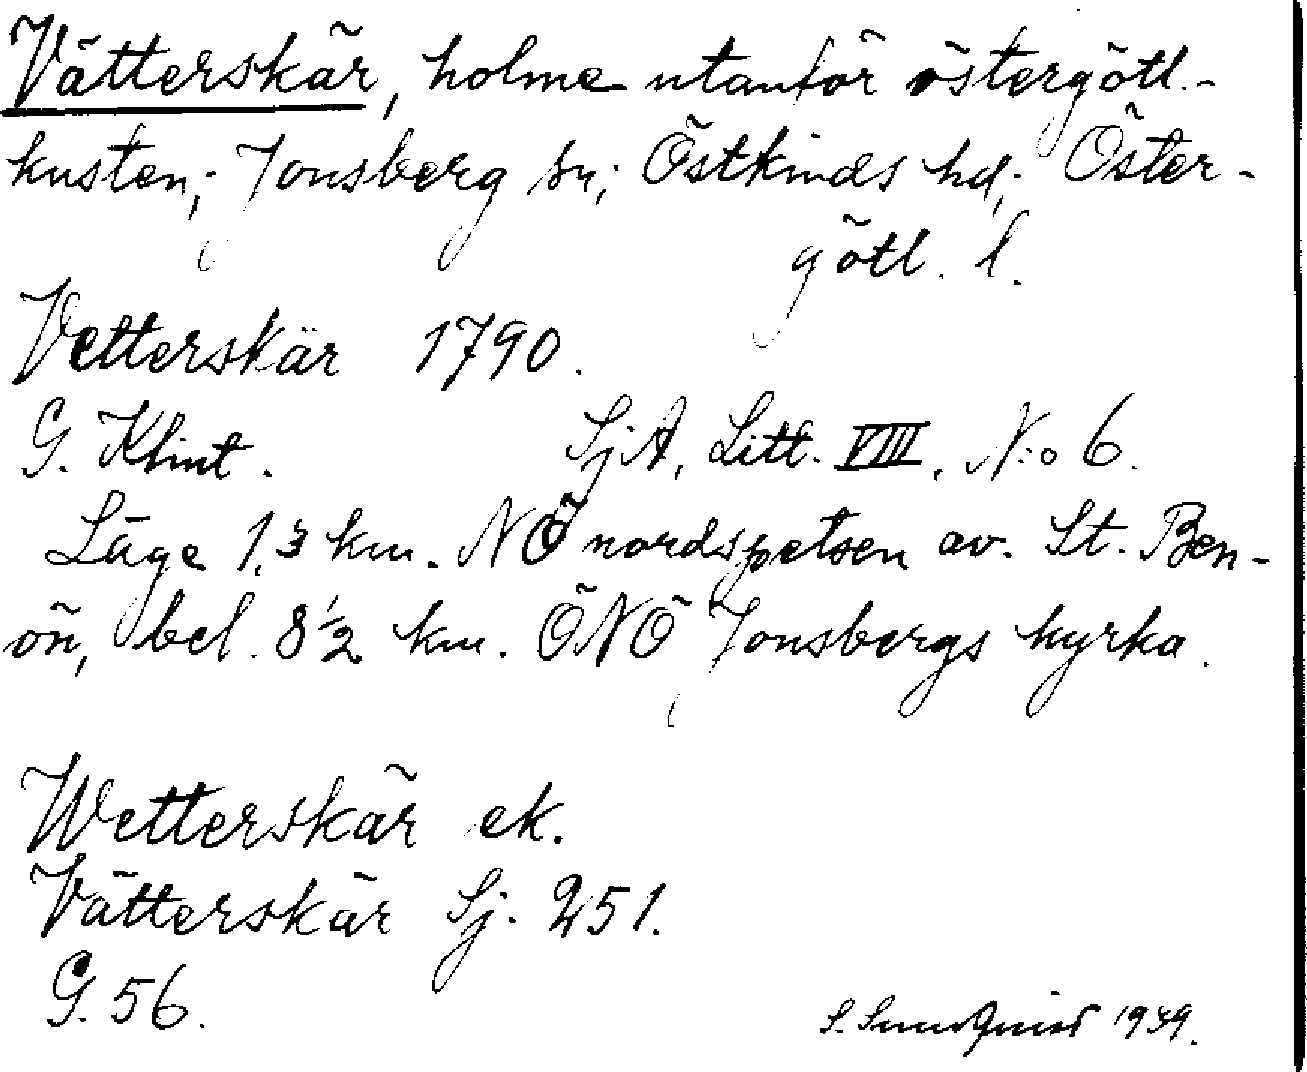 Vätterskär, holme utanför östergötl.-
kusten; Jonsberg sn; Östkinds hd; Öster-
götl. l.
Vetterskär 1790.
G. Klint. SjA, Litt. VIII, N:o 6.
Läge 1,3 km. NÖ nordspetsen av. St. Ben-
ön, bel. 8 1/2 km. ÖNÖ Jonsbergs kyrka.
Wetterskär ek.
Vätterskär Sj. 251.
G. 56.
S. Sundquist 1939.